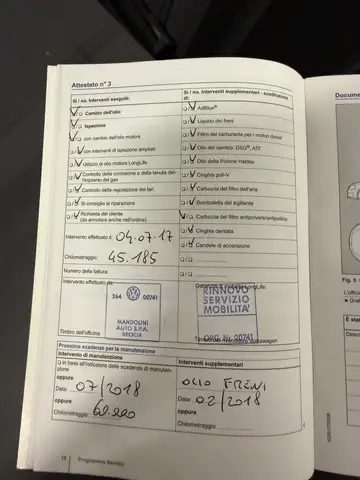 Attestato n° 3
Sì / no. Interventi eseguiti:
Cambio dell'olio
Ispezione
con cambio dell'olio motore
con intervento di ispezione ampliati
Utilizzo di olio motore LongLife
Controllo della corrosione e della tenuta dell'impianto del gas
Controllo della regolazione dei fari
Si consiglia la riparazione
Richiesta del cliente
(da annotare anche nell'ordine)
Intervento effettuato il: 04.07.17
Chilometraggio: 45.185
Numero della fattura:
Intervento effettuato da:
264 00741
MANDOLINI
AUTO S.P.A.
BRESCIA
Timbro dell'officina
Sì / no. Interventi supplementari - sostituzione di:
AdBlue®
Liquido dei freni
Filtro del carburante per i motori diesel
Olio del cambio DSG®, ATF
Olio della frizione Haldex
Cinghia poli-V
Cartuccia del filtro dell'aria
Bomboletta del sigillante
Cartuccia del filtro antipolvere/antipolline
Cinghia dentata
Candele di accensione
Garanzia di mobilità LongLife:
RINNOVO
SERVIZIO
MOBILITA'
ORG. Nr. 00741
Prossime scadenze per la manutenzione
Intervento di manutenzione
in base all'indicatore delle scadenze di manutenzione
oppure
Data: 07/2018
oppure
Chilometraggio: 60.000
Interventi supplementari
OLIO FRENI
oppure
Data: 02/2018
oppure
Chilometraggio:
16 Programma Service
Docume
Fig. 5
L'office